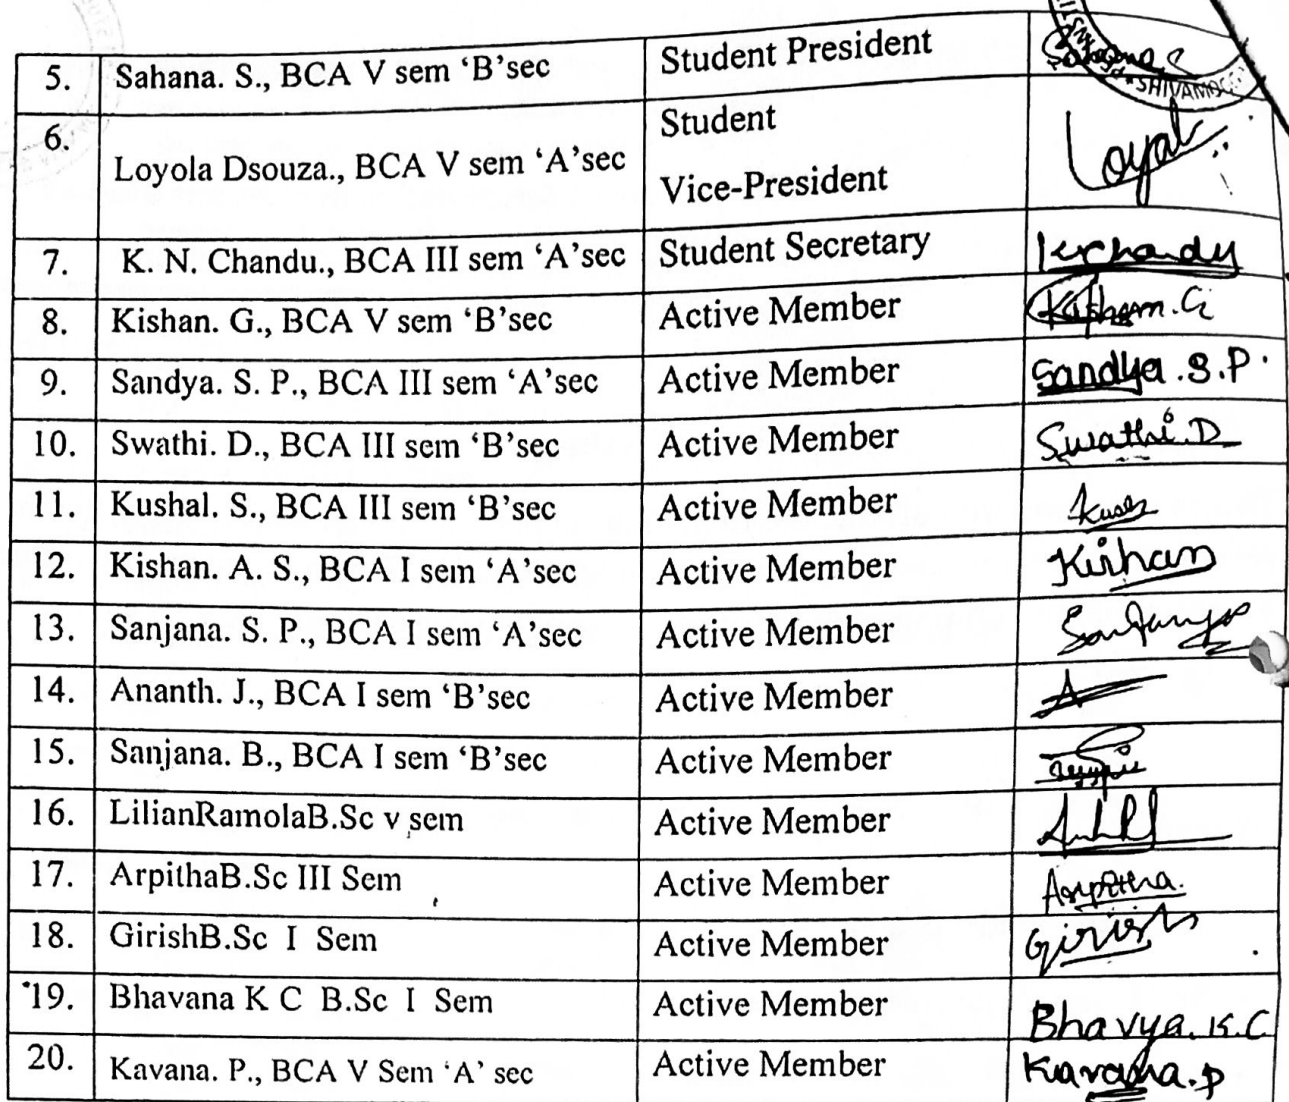 5. Sahana. S., BCA V sem ‘B’sec Student President Sahana. S
SHIVAMOGG
6. Loyola Dsouza., BCA V sem ‘A’sec Student Vice-President Loyal
7. K. N. Chandu., BCA III sem ‘A’sec Student Secretary
8. Kishan. G., BCA V sem ‘B’sec Active Member
9. Sandya. S. P., BCA III sem ‘A’sec Active Member Sandya.S.P.
10. Swathi. D., BCA III sem ‘B’sec Active Member Swathi.D
11. Kushal. S., BCA III sem ‘B’sec Active Member
12. Kishan. A. S., BCA I sem ‘A’sec Active Member Kishan
13. Sanjana. S. P., BCA I sem ‘A’sec Active Member
14. Ananth. J., BCA I sem ‘B’sec Active Member
15. Sanjana. B., BCA I sem ‘B’sec Active Member
16. LilianRamolaB.Sc v sem Active Member
17. ArpithaB.Sc III Sem Active Member Arpitha.
18. GirishB.Sc I Sem Active Member Girish
19. Bhavana K C B.Sc I Sem Active Member Bhavya.K.C
20. Kavana. P., BCA V Sem ‘A’ sec Active Member Kavana.P